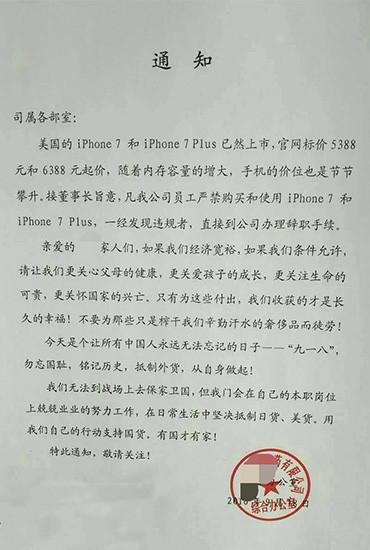 通 知
司属各部室：
美国的 iPhone 7 和 iPhone 7 Plus 已然上市，官网标价 5388
元和 6388 元起价，随着内存容量的增大，手机的价位也是节节
攀升。接董事长旨意，凡我公司员工严禁购买和使用 iPhone 7 和
iPhone 7 Plus，一经发现违规者，直接到公司办理辞职手续。
亲爱的 家人们，如果我们经济宽裕，如果我们条件允许，
请让我们更关心父母的健康，更关爱孩子的成长，更关注生命的
可贵，更关怀国家的兴亡。只有为这些付出，我们收获的才是长
久的幸福！不要为那些只是榨干我们辛勤汗水的奢侈品而徒劳！
今天是个让所有中国人永远无法忘记的日子——“九一八”，
勿忘国耻，铭记历史，抵制外货，从自身做起！
我们无法到战场上去保家卫国，但我门会在自己的本职岗位
上兢兢业业的努力工作，在日常生活中坚决抵制日货、美货。用
我们自己的行动支持国货。有国才有家！
特此通知，敬请关注！
药有限公司
综合办公室